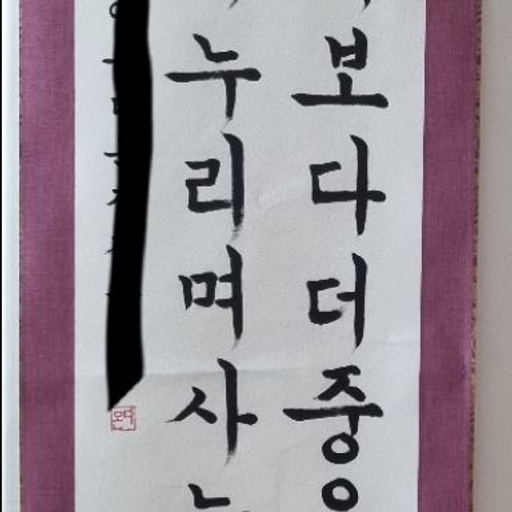 보다더중
누리며사